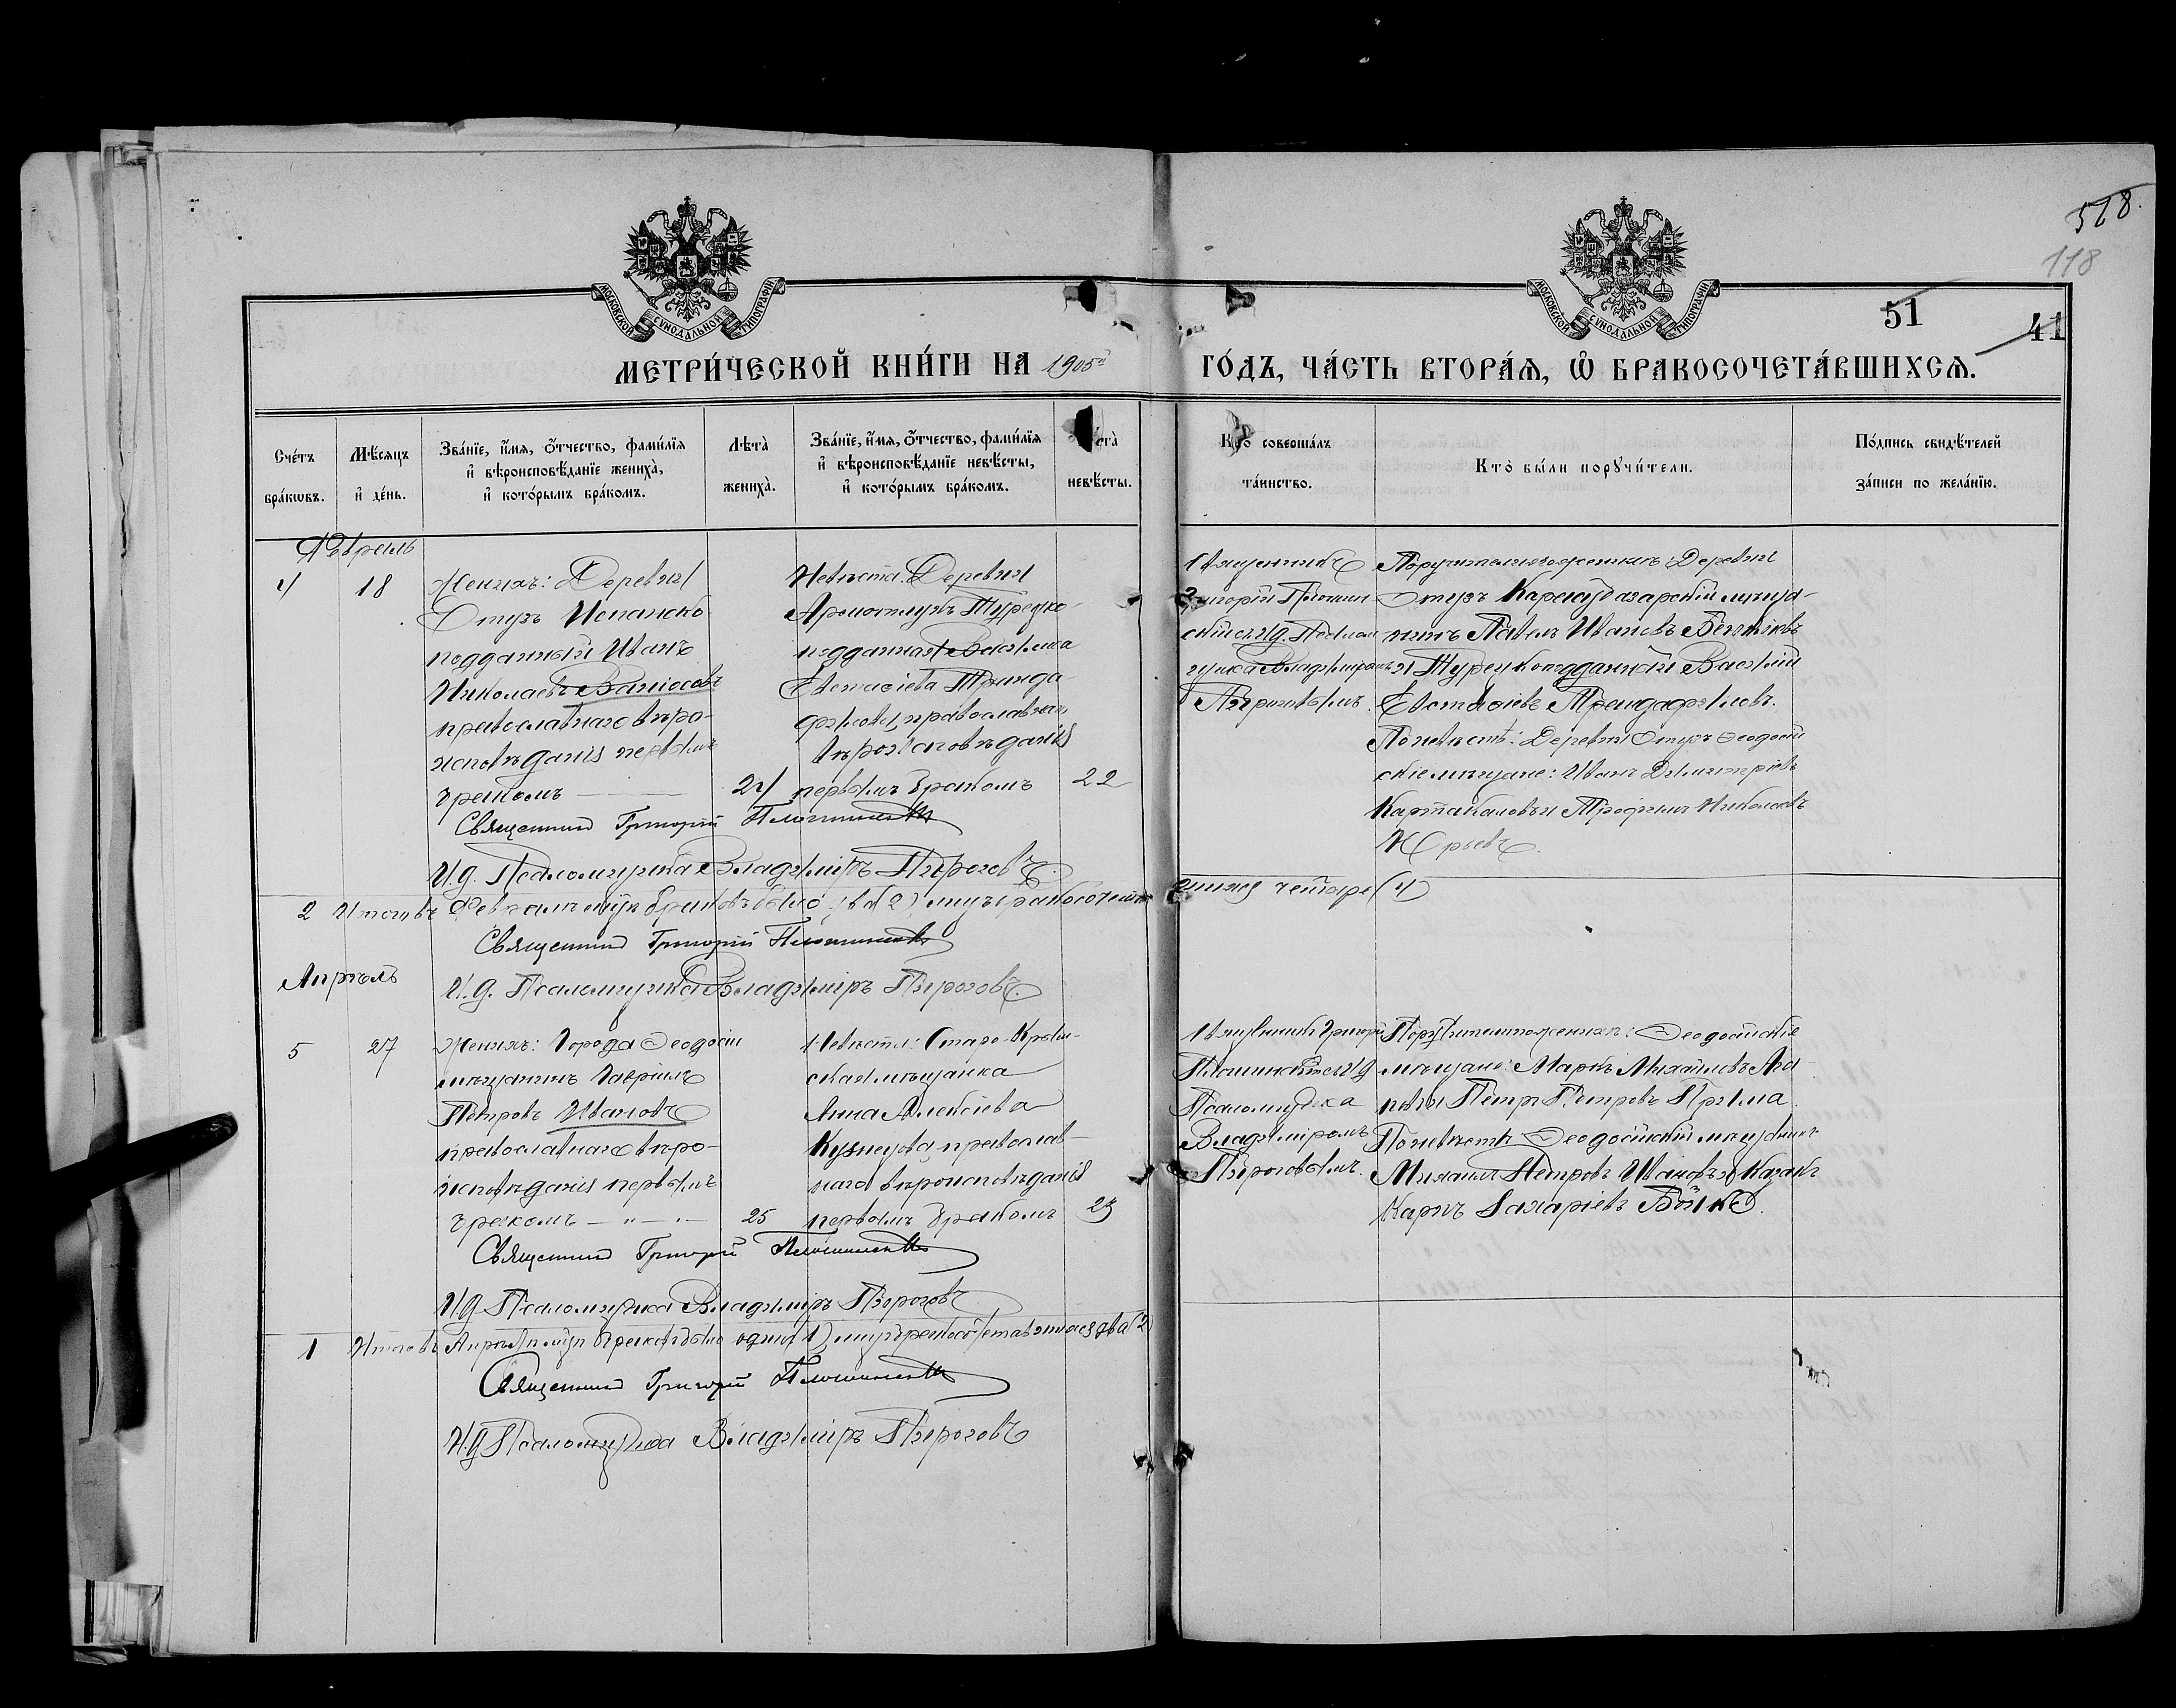 518.
118
51
41
МОСКОВСКОЙ СУНОДАЛЬНОЙ ТИПОГРАФІИ
МОСКОВСКОЙ СУНОДАЛЬНОЙ ТИПОГРАФІИ
МЕТРИ́ЧЕСКОЙ КНИ́ГИ НА 1905й ГО́ДЪ, ЧА́СТЬ ВТОРА́Я, Ѡ҆ БРАКОСОЧЕТА́ВШИХСЯ.
Сче́тъ бра́кωвъ.
Мѣ́сяцъ и҆ де́нь.
Зва́нїе, и҆́мя, ѻ҆́тчество, фами́лїя и҆ вѣроисповѣ́данїе жениха̀, и҆ кото́рымъ бра́комъ.
Лѣ́та̀ жениха̀.
Зва́нїе, и҆́мя, ѻ҆́тчество, фами́лїя и҆ вѣроисповѣ́данїе невѣ́сты, и҆ кото́рымъ бра́комъ.
ѣта̀ невѣ́сты.
Кто̀ соверша́лъ та́инство.
Кто̀ бы́ли порꙋчи́тели.
По́дпись свидѣ́телей за́писи по жела́нїю.
Февраль
4
18
Женихъ: Деревни
Отузъ Испанско
подданный Иванъ
Николаевъ Ваніосовъ
православнаго вѣро-
исповѣданія первымъ
бракомъ
24
Невѣста: Деревни
Турецко-
подданная Василиса
Евстафіева Тринда-
филова, православнаго
вѣроисповѣданія
первымъ бракомъ
22
Священникъ
Григорій Плошин-
скій съ И.д. Псалом-
щика Владиміромъ
Пироговымъ.
Поручители по женихѣ: Деревни
Отузъ Карасубазарскій мѣща-
нинъ Павелъ Ивановъ
и Турецкоподданный Василій
Евстафіевъ Трендафиловъ.
По невѣстѣ: Деревни Отузъ Ѳеодосій
скіе мѣщане: Иванъ Димитріевъ
и Трофимъ Николаевъ
Юрьевъ.
Священникъ Григорій Плошинскій
И.д. Псаломщика Владиміръ Пироговъ.
2 Итого въ Февралѣ м-цѣ браковъ было два (2), лицъ бракосочетав
шихся четыре (4)
Священникъ Григорій Плошинскій
И.д. Псаломщика Владиміръ Пироговъ.
Апрѣль
5
27
Женихъ: Города Ѳеодосіи
мѣщанинъ Гавріилъ
Петровъ Ивановъ
православнаго вѣро-
исповѣданія первымъ
бракомъ — „ — „ —
25
Невѣста: Старо-Крым-
ская мѣщанка
Анна Алексіева
Кузнецова православ-
наго вѣроисповѣданія
первымъ бракомъ
23
Священникъ Григорій
Плошинскій съ И.д.
Псаломщика
Владиміромъ
Пироговымъ.
Поручители по женихѣ: Ѳеодосійскіе
мѣщане: Маркъ Михайловъ
и Петръ Петровъ Прима.
По невѣстѣ Ѳеодосійскій мѣщанинъ
Михаилъ Петровъ Ивановъ и Казакъ
Карпъ Захаріевъ Бойко.
Священникъ Григорій Плошинскій
И.д. Псаломщика Владиміръ Пироговъ
1 Итого въ Апрѣлѣ м-цѣ браковъ было одинъ (1), лицъ бракосочетавшихся два (2)
Священникъ Григорій Плошинскій
И.д. Псаломщика Владиміръ Пироговъ